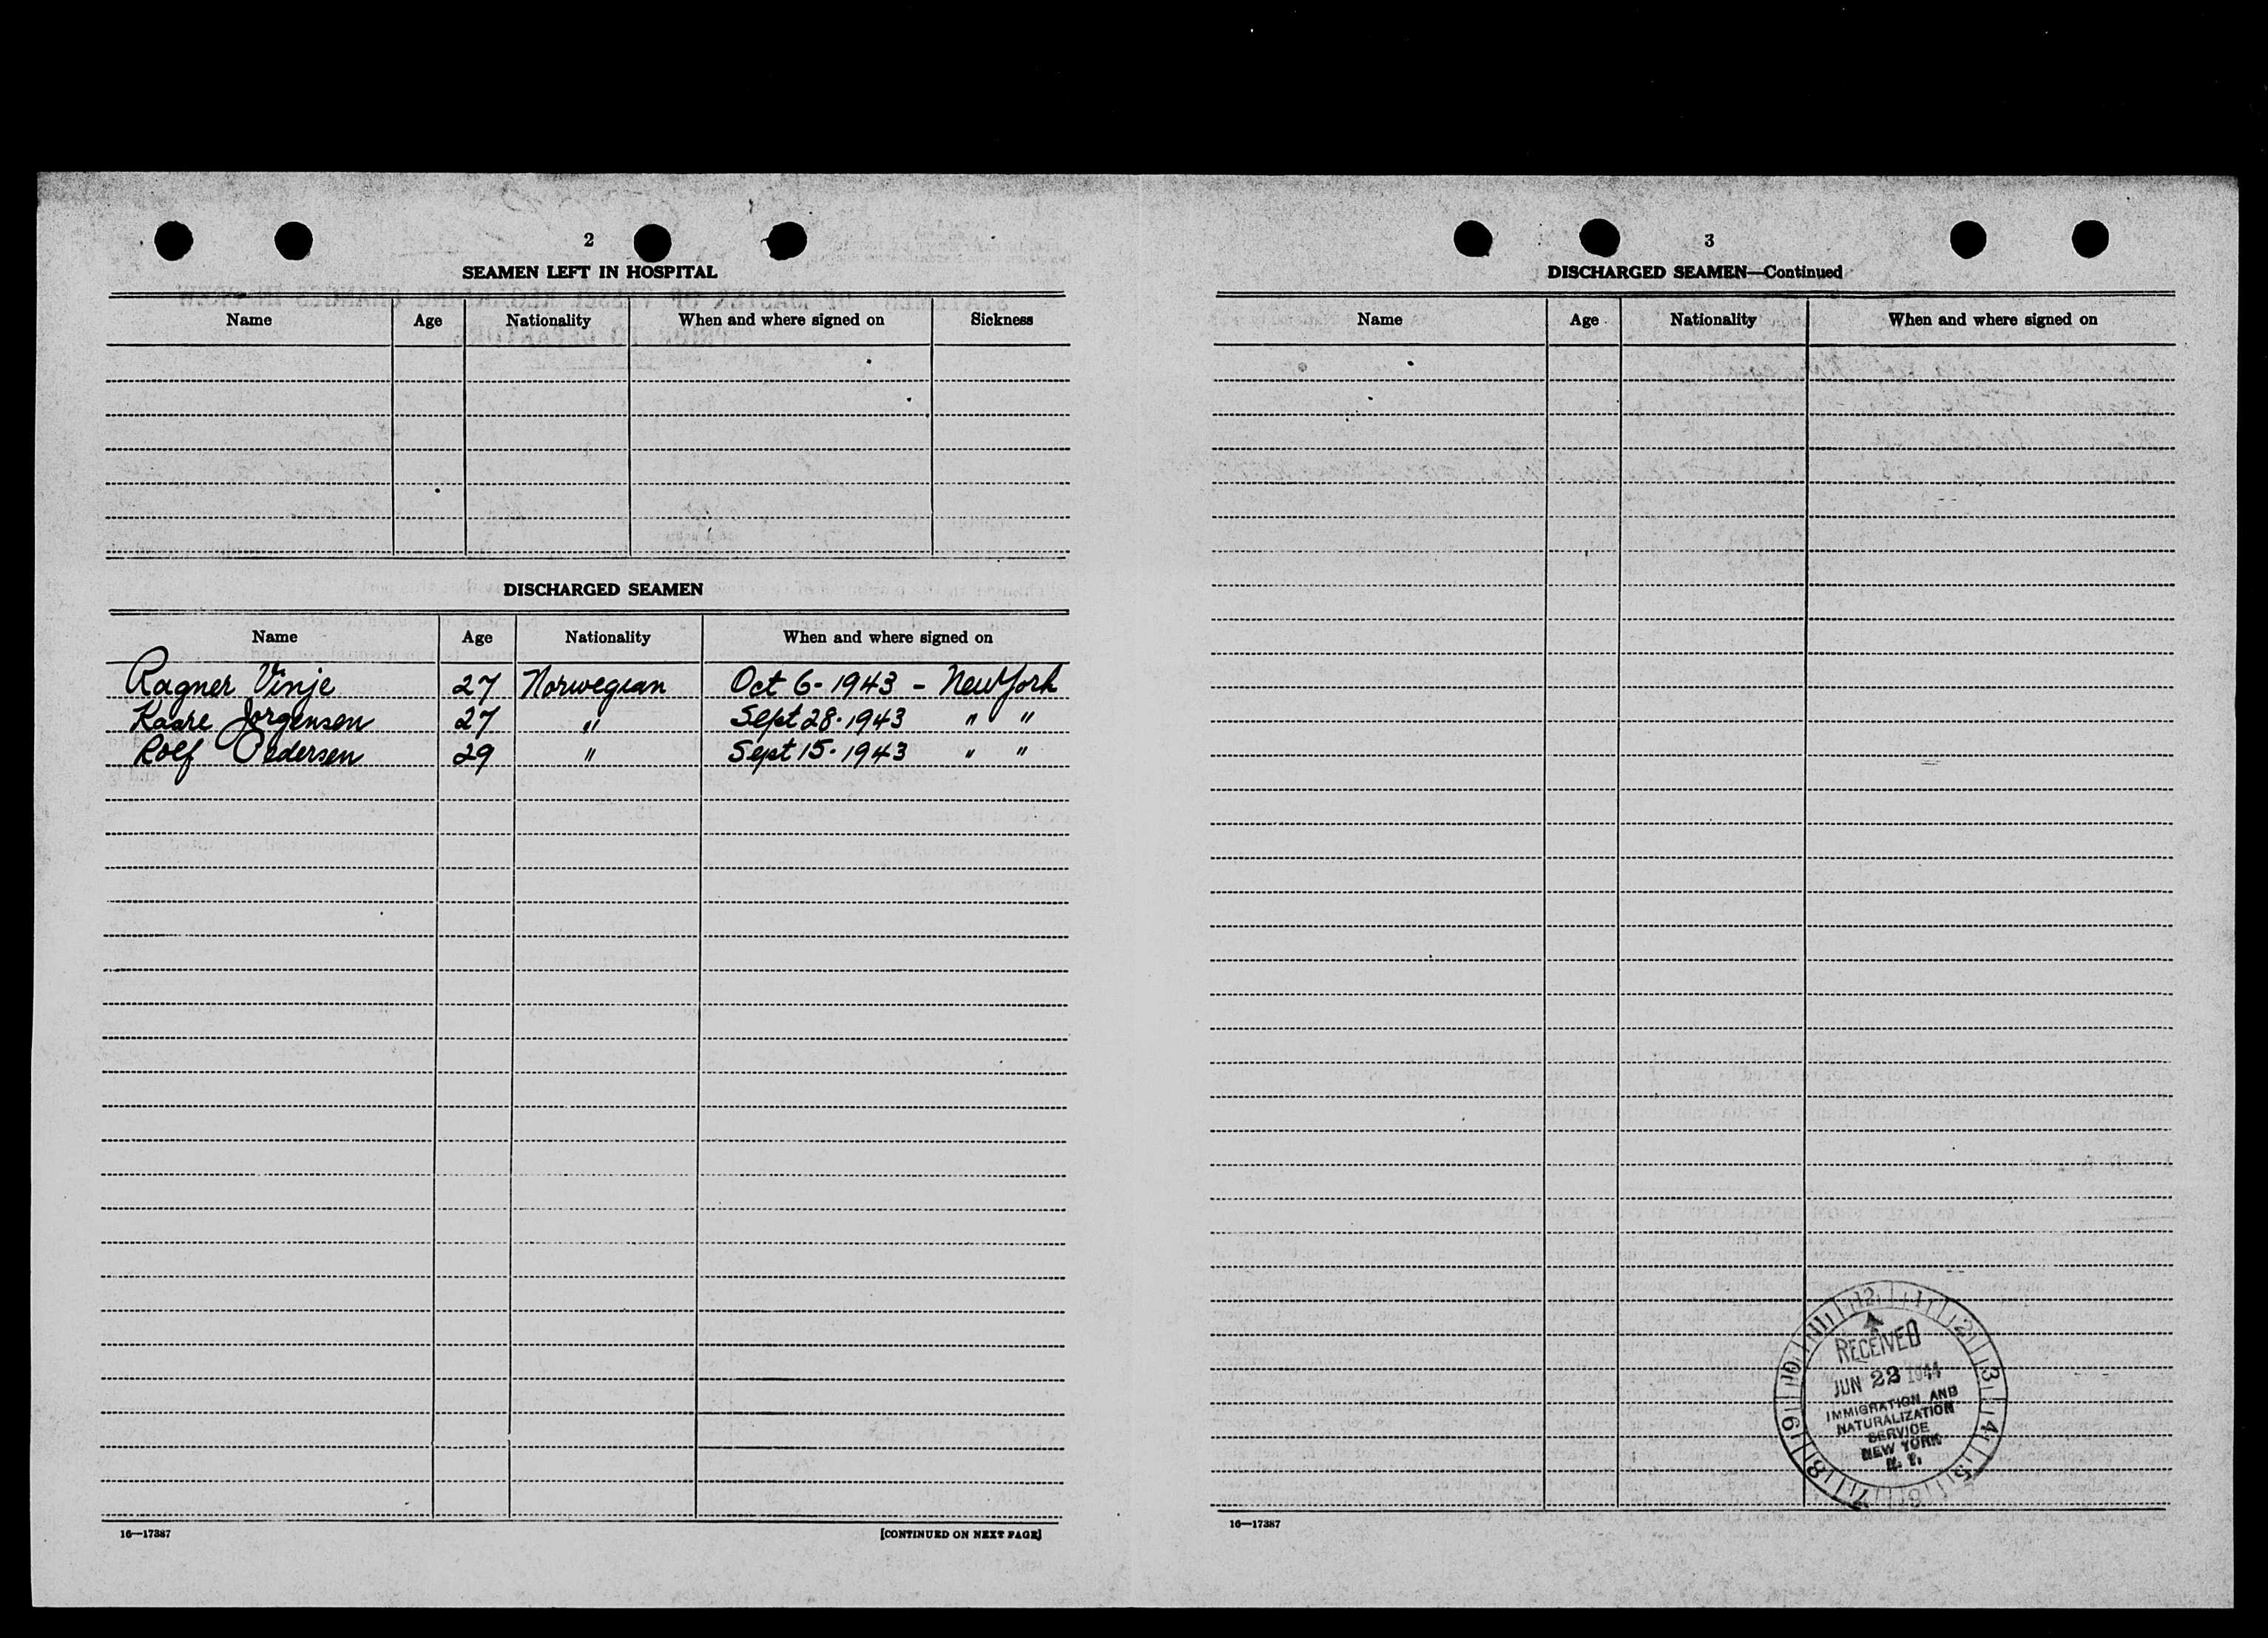 2
SEAMEN LEFT IN HOSPITAL
Name Age Nationality When and where signed on Sickness
DISCHARGED SEAMEN
Name Age Nationality When and where signed on
Ragner Vinje 27 Norwegian Oct 6-1943 - New York
Kaare Jorgensen 27 " Sept 28-1943 " "
Rolf Pedersen 29 " Sept 15-1943 " "
16—17387 [CONTINUED ON NEXT PAGE]
3
DISCHARGED SEAMEN—Continued
Name Age Nationality When and where signed on
12 1 2 3 4 5 6 7 8 9 10 11
RECEIVED
JUN 22 1944
IMMIGRATION AND
NATURALIZATION
SERVICE
NEW YORK
N. Y.
16—17387